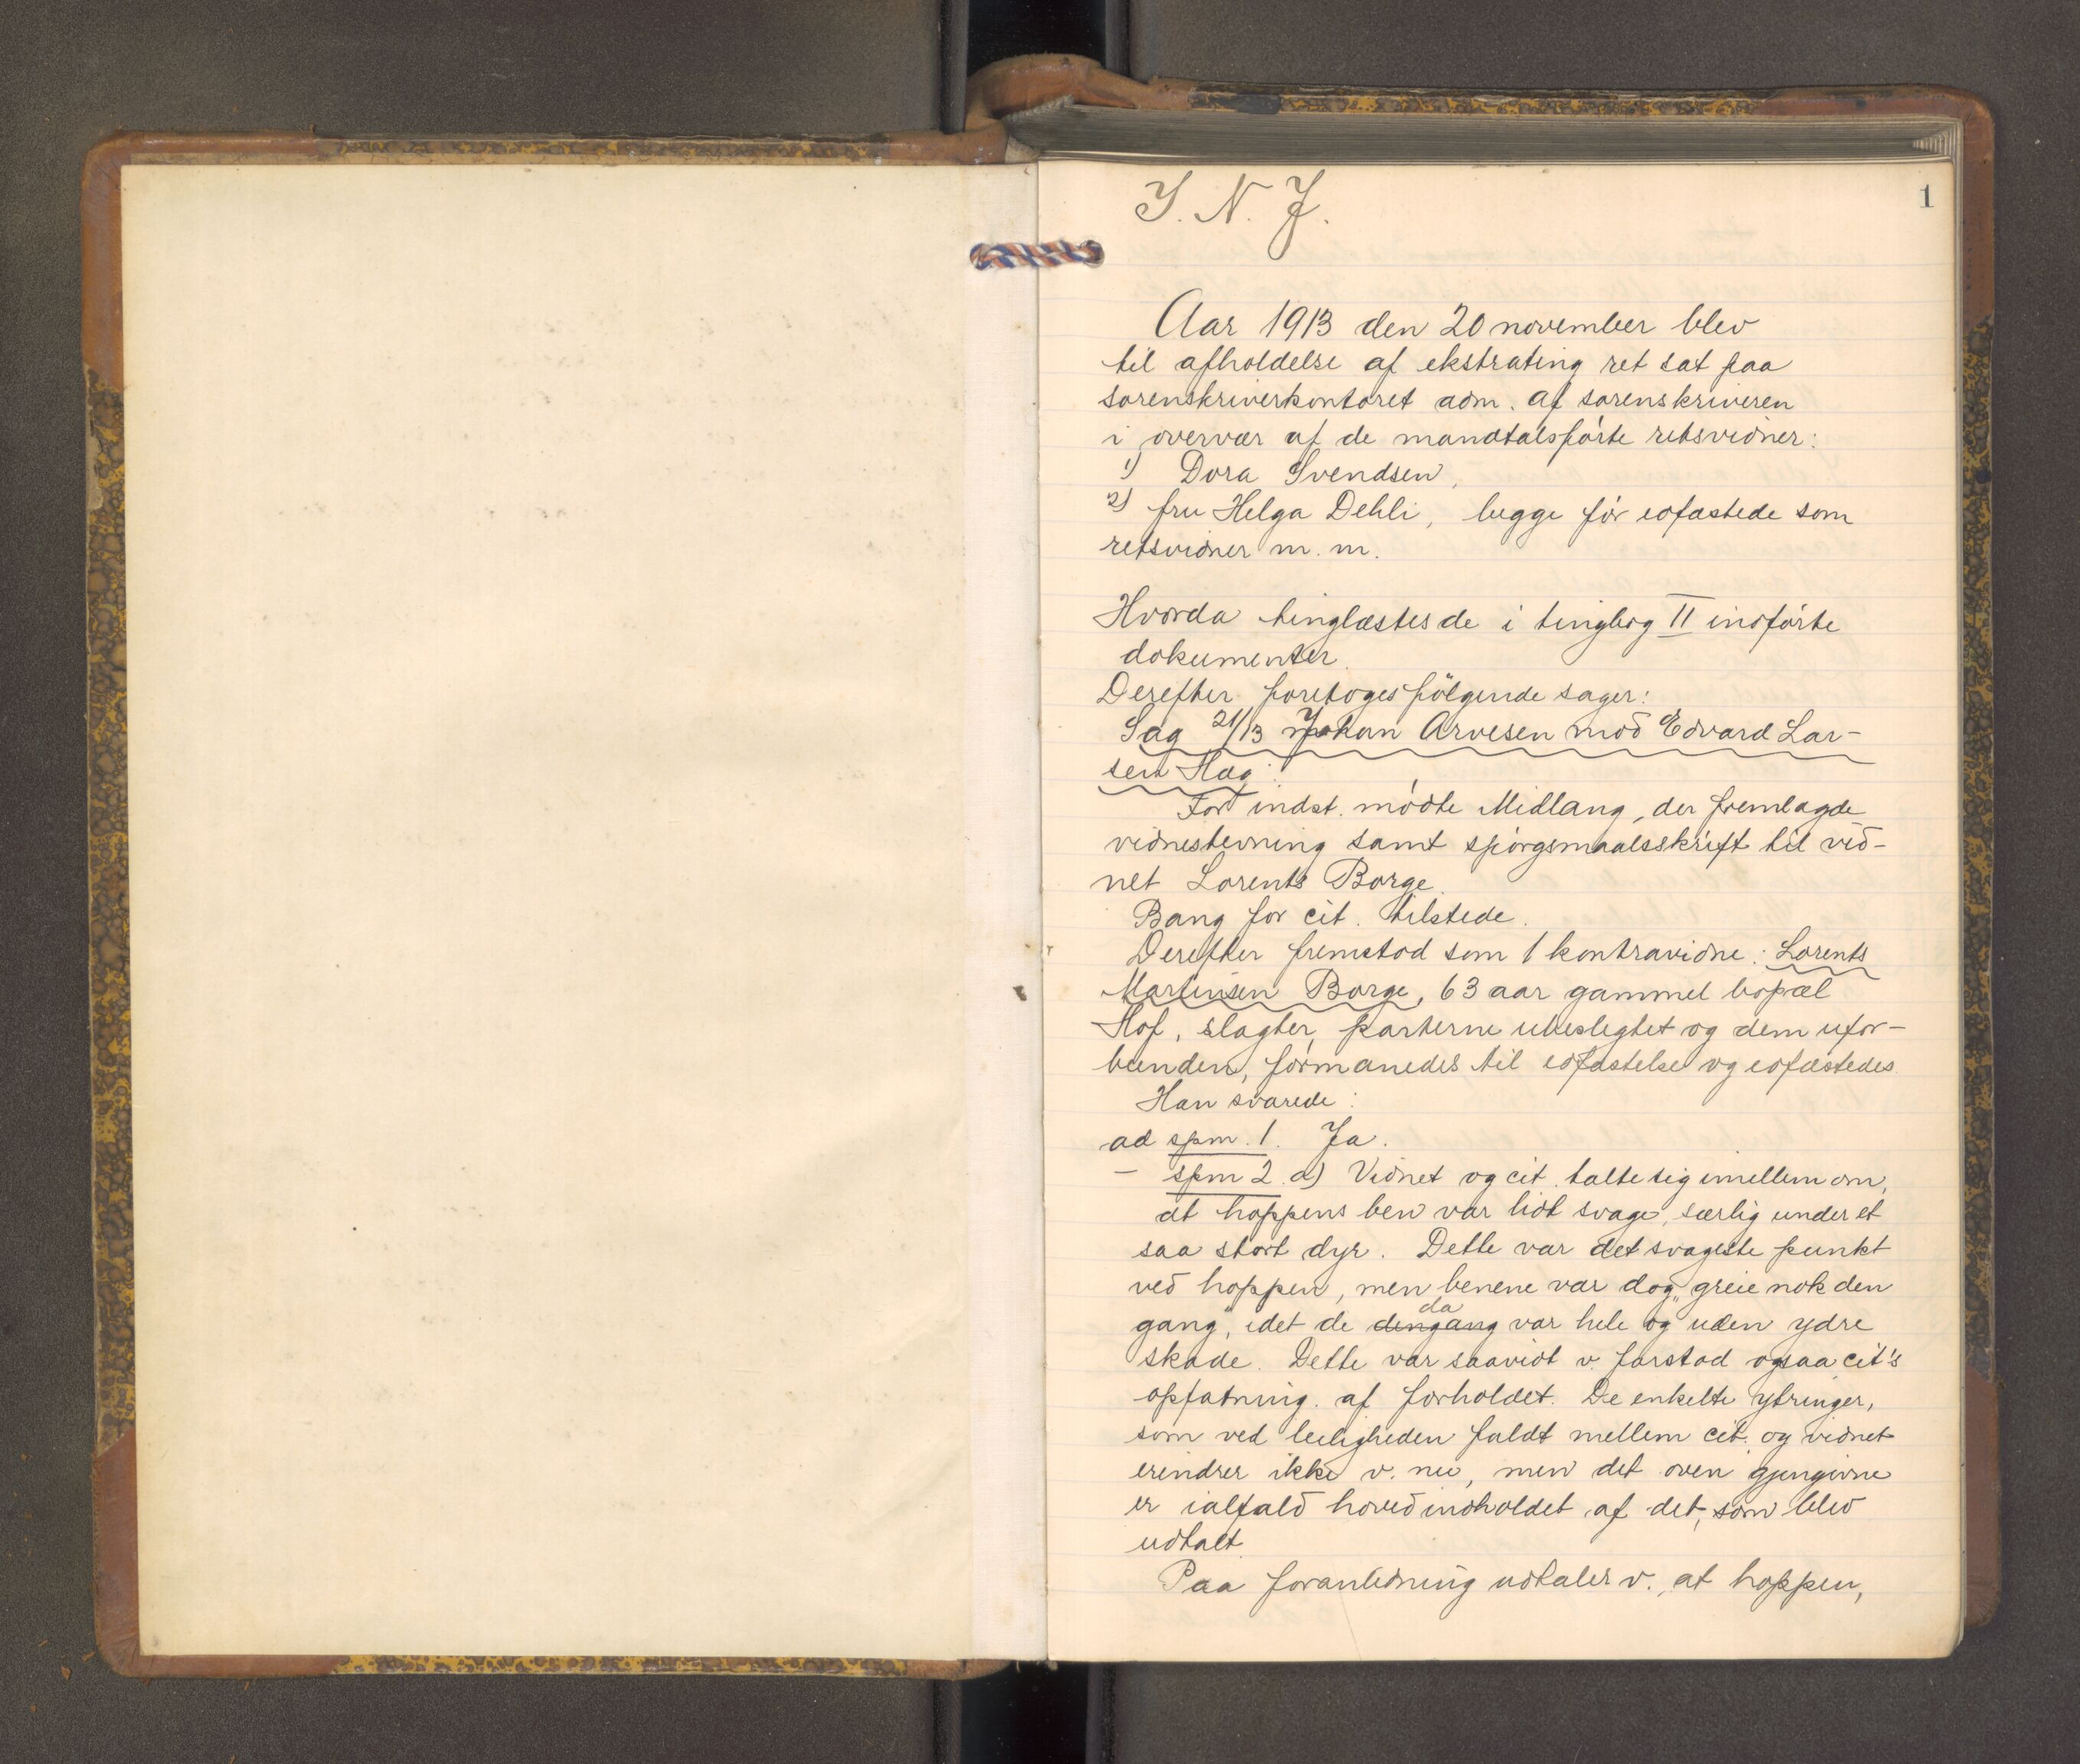 1
I. N. J.
Aar 1913 den 20 november blev
til afholdelse af ekstrating ret sat paa
sorenskriverkontoret adm. af sorenskriveren
i overvær af de mandtalsførte retsvidner:
1) Dora Svendsen,
2) fru Helga Dehli, begge før edfæstede som
retsvidner m. m.
Hvorda tinglæstes de i tingbog II indførte
dokumenter.
Derefter foretoges følgende sager:
Sag 21/13 Johan Arvesen mod Edvard Lar-
sen Hæg:
For indst. mødte Midlang, der fremlagde
vidnestevning samt spørgsmaalsskrift til vid-
net Lorents Borge.
Bang for cit. tilstede.
Derefter fremstod som 1 kontravidne: Lorents
Martinsen Borge, 63 aar gammel bopæl
Hof, slagter, parterne ubeslegtet og dem ufor-
bunden, formanedes til edfæstelse og edfæstedes.
Han svarede:
ad spm. 1. Ja.
— spm 2. a) Vidnet og cit. talte sig imellem om,
at hoppens ben var lidt svage, særlig under et
saa stort dyr. Dette var det svageste punkt
ved hoppen, men benene var dog „greie nok den
gang", idet de dengang da var hele og uden ydre
skade. Dette var saavidt v. forstod ogsaa cit's
opfatning af forholdet. De enkelte ytringer,
som ved leiligheden faldt mellem cit. og vidnet
erindrer ikke v. nu, men det oven gjengivne
er ialfald hovedindholdet af det, som blev
udtalt.
Paa foranledning udtaler v., at hoppen,